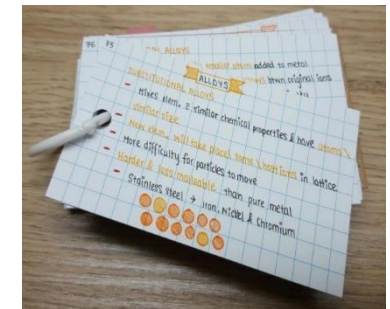 96 95
ALLOYS
smaller when added to metal
ALLOYS
btwn original ions
SUBSTITUTIONAL ALLOYS
- Mixes elem. & similar chemical properties & have atoms\
similar size
- New elem. will take place some \ cations in lattice.
- More difficulty for particles to move
- Harder & less malleable than pure metal
- Stainless steel → Iron, Nickel & Chromium